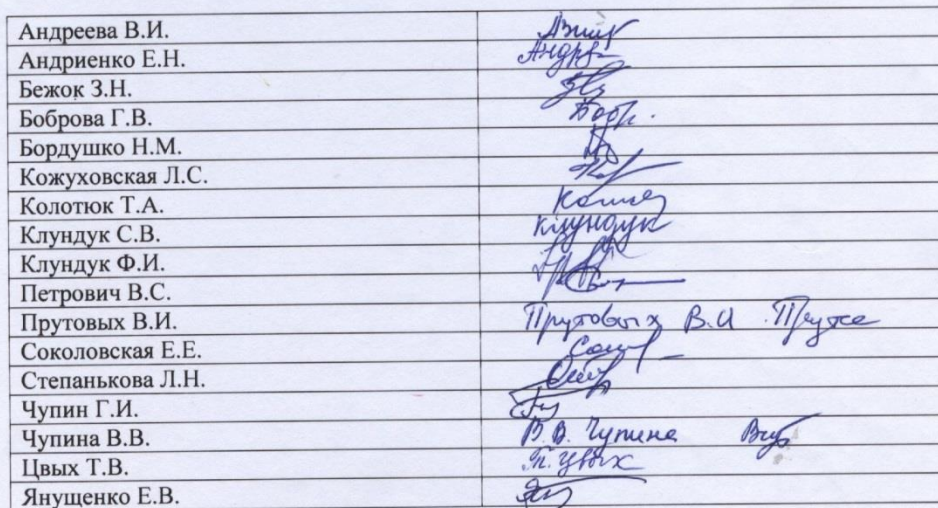 Андреева В.И.
Андриенко Е.Н. Андр
Бежок З.Н.
Боброва Г.В. Бобр.
Бордушко Н.М.
Кожуховская Л.С.
Колотюк Т.А.
Клундук С.В. Клундук
Клундук Ф.И.
Петрович В.С.
Прутовых В.И. Прутовых В.И
Соколовская Е.Е.
Степанькова Л.Н.
Чупин Г.И.
Чупина В.В. В.В. Чупина
Цвых Т.В. Т. Цвых
Янущенко Е.В.